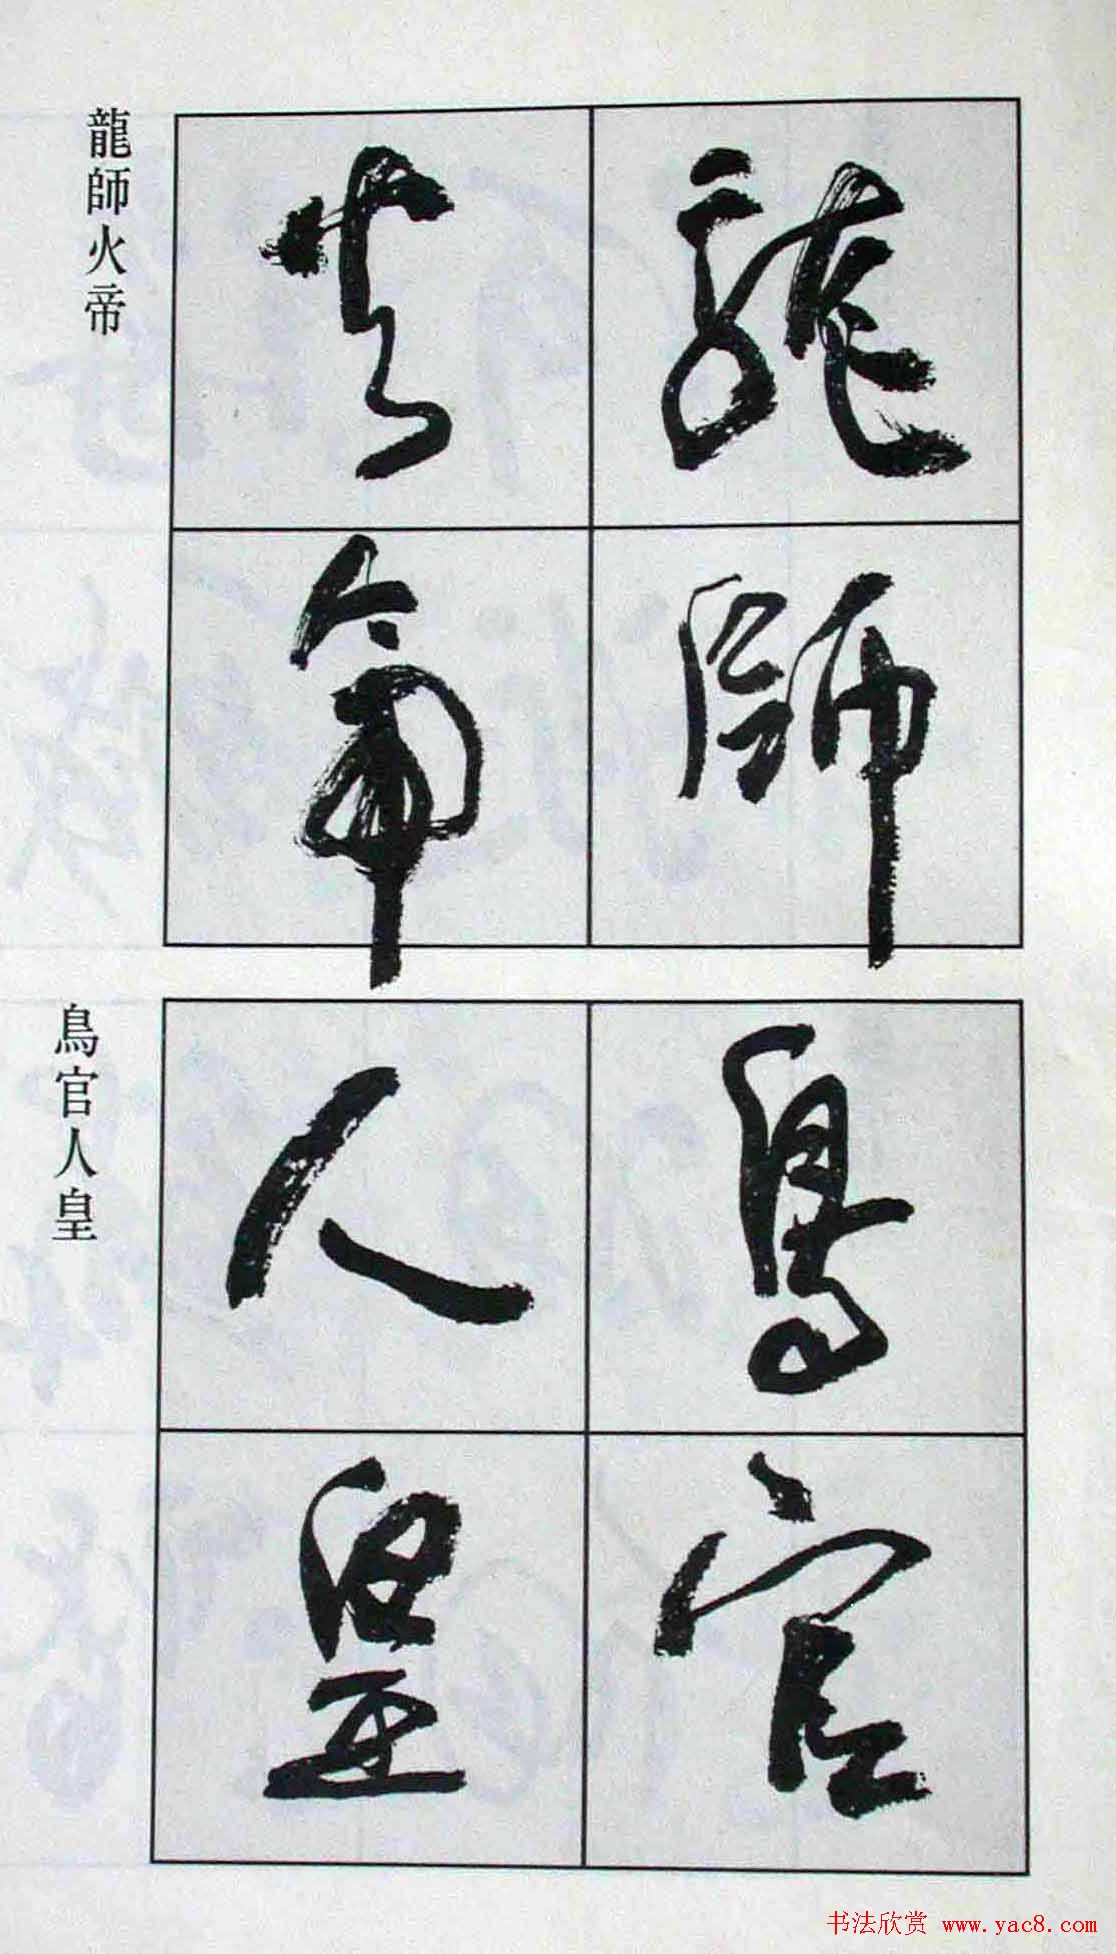 龍師火帝
龍師
火帝
鳥官人皇
鳥官
人皇
书法欣赏 www.yac8.com